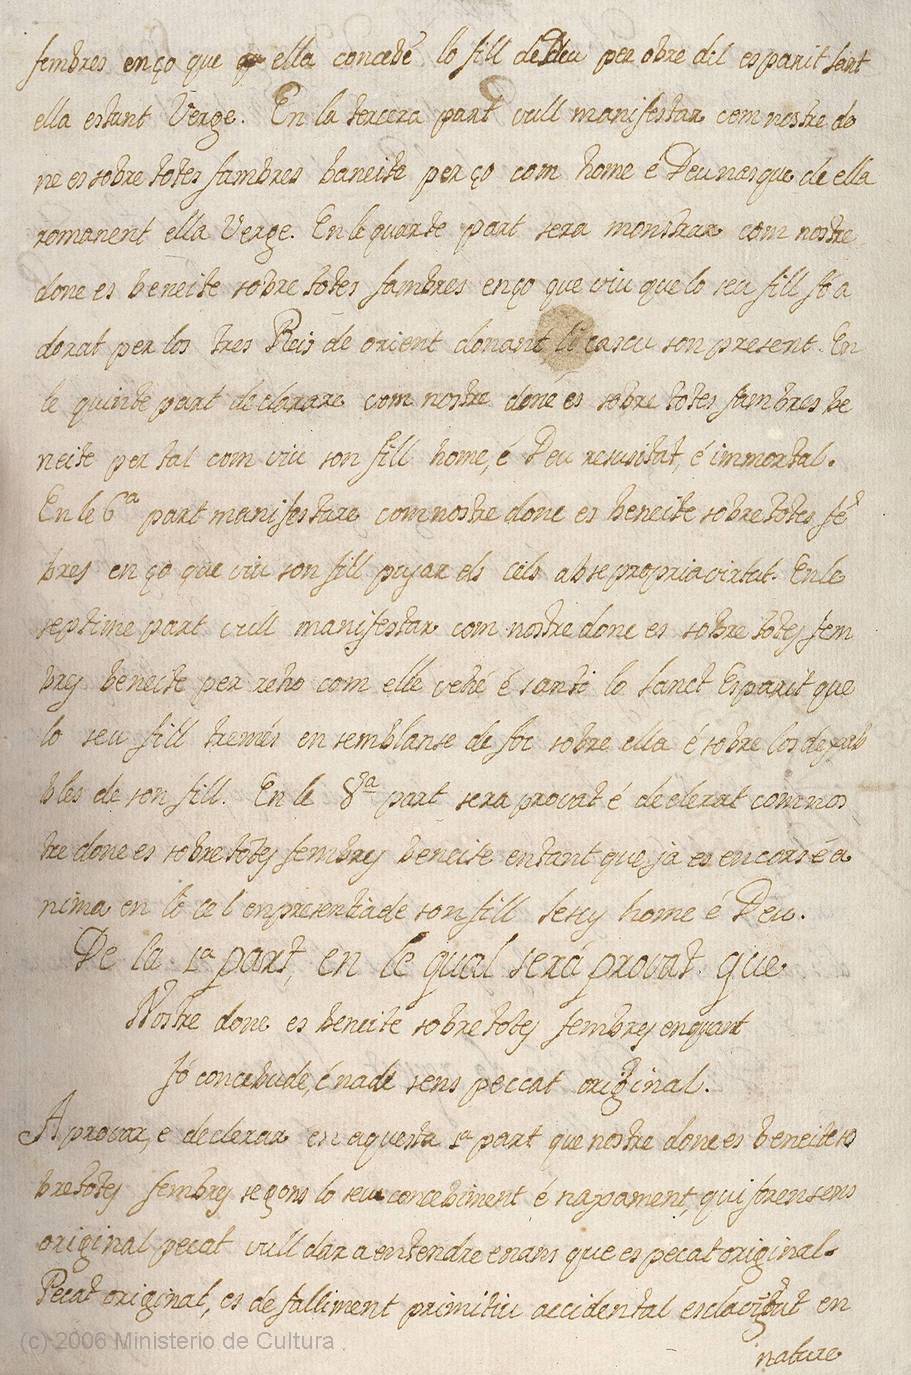 fembres en ço que ella concebé lo fill de Deu per obre del esparit sant
ella estant Verge. En la tercera part vull manifestar com nostre do
ne es sobre totes fambres baneite per ço com home e Deu nasque de ella
romanent ella Verge. En le quarte part sera monstrar com nostre
done es beneite sobre totes fambres en ço que viu que lo seu fill fó a
dorat per los tres Reis de orient donant lo cascu son present. En
le quinte part declarare com nostre done es sobre totes fambres be
neite per tal com viu son fill home, é Deu resusitat, é immortal.
En le 6ª part manifestare com nostre done es beneite sobre totes fē
bres en ço que viu son fill pujar els cels ab se propria virtat. En le
septime part vull manifestar com nostre done es sobre totes fem
bres beneite per reho com elle vehé é santi lo Sanct Esparit que
lo seu fill tremés en semblanse de foc sobre ella é sobre los dexeb
bles de son fill. En le 8ª part sera provat é declerat com nos
tre done es sobre totes fembres beneite entant que ja es en cors é a
nima en lo cel en presentia de son fill Jesus home é Deu.
De la 1ª part, en le qual será provat que
Nostre done es beneite sobre totes fembres enquant
fó concebude, é nade sens peccat original.
A provar, e declerar en aquesta 1ª part que nostre done es beneite so
bre totes fembres segons lo seu concebiment é naxament, qui foren sens
original pecat vull dar a entendre enans que es pecat original.
Pecat original, es defalliment primitiu accidental esclavitut en
nature
(c) 2006 Ministerio de Cultura